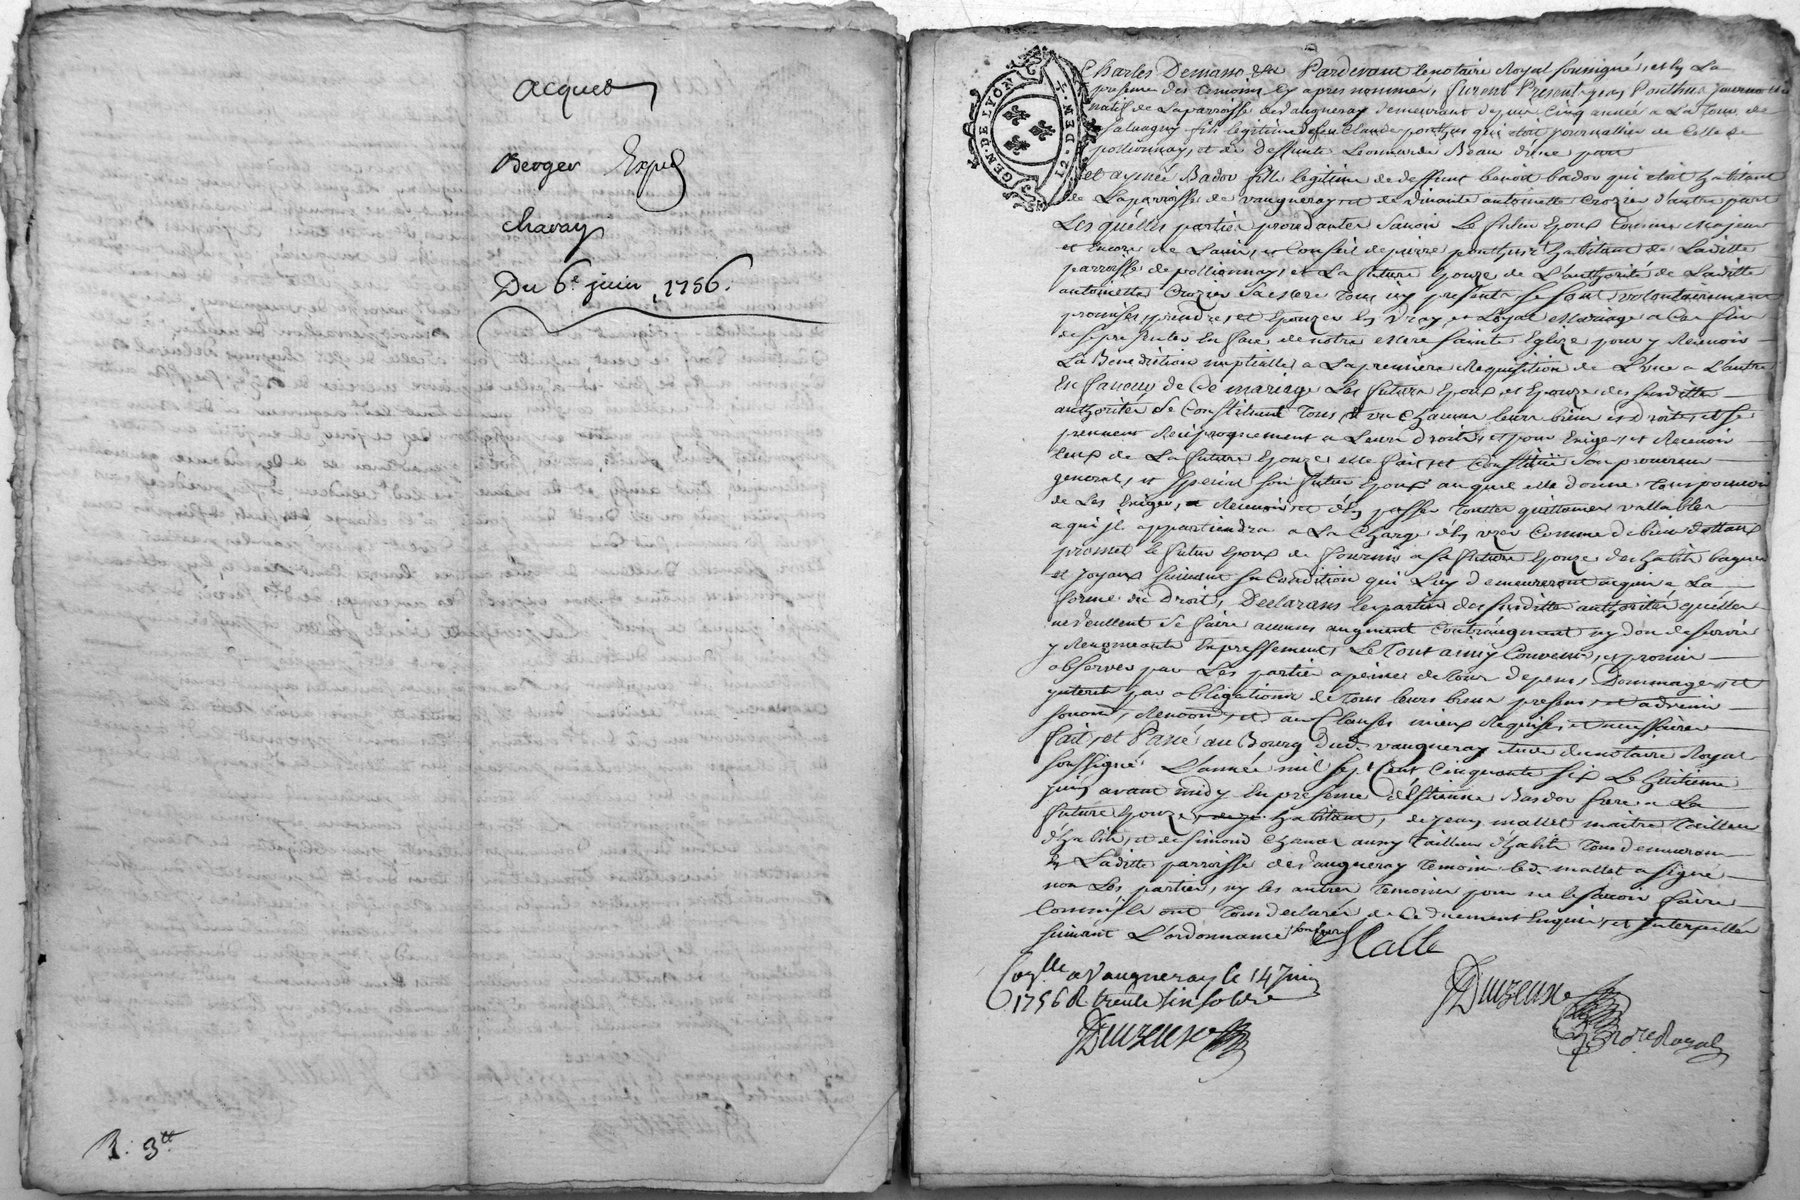 acquet
Berger
chavay
Du 6e juin 1756.
R. 3tt
GEN. DE LYON
2 DEN.
Pardevant le notaire Royal soussigné, et en La
presence des temoins cy apres nommés, furent Presents
natif de La parroisse de vaugneray demeurant depuis Cinq année a La Tour de
Salvagny fils legitime de feu Claude ponthus qui etoit journallier de Celle de
pollionnay, et de deffunte Leonnarde Beau d'une part
et aymée Bador fille legitime de deffunt benoit bador qui etoit habitant
de La parroisse de vaugneray et de vivante antoinette Crozier d'autre part
Les quelles parties procedantes Sçavoir Le futur Epoux Comme Majeur
et encore de L'avis et Conseil de pierre ponthus habitant de Laditte
parroisse de pollionnay, et La future Epouze de L'authorité de Laditte
antoinette Crozier Sa mere Tous icy presents Se sont volontairement
promises prendre, et Epouzer en vray et Loyal Mariage a Cet fin
de se presenter En face de notre Mere Sainte Eglize pour y Recevoir
La Bénédiction nuptialle a La premiere Requisition de L'une a L'autre
En faveur de Ce mariage Les futurs Epoux, et Epouze des susdittes
authorités Se Constituent Tous Et un Chacun leurs biens et droits, et Se
prennent Reciproquement a Leurs droits, et pour Exiger et Recevoir
Ceux de La future Epouze elle fait et Constitue Son procureur
general, et special Son futur Epoux auquel elle donne Tous pouvoir
de Les Exiger, et Recevoir et d'en passer Toutes quittances vallables
a qui il appartiendra a La Charge d'en uzer Comme de bien dottaux
promet le futur Epoux de fournir a Sa future Epouze des habits bagues
et Joyaux Suivant Sa Condition qui Luy demeureront acquis a La
forme du Droit, Declarans les parties des susdittes authorités qu'elles
ne veullent Se faire aucuns augment Contraugment ny don de Survie
y Renonceants Expressement, Le Tout ainsy Convenu, et promis
observer par Les parties a peine de tous depens, Dommages et
interets par obligations de Tous leurs biens presens, et advenir
Soumis, Renoon, et aux Clauses mieux Requises et necessaires
fait, et Passé au Bourg dud. vaugneray etude du notaire Royal
soussigné L'année mil sept Cent Cinquante six Le huitieme
juin avant midy En presence d'Estienne Bador frere a La
future Epouze, habitant, de jean mallet maitre Tailleur
d'habits, et de Simond Chanal aussy Tailleur d'habits Tous demeurans
en Laditte parroisse de vaugneray temoins led. mallet a Signé
non Les parties, ny les autres Temoins pour ne le scavoir faire
Comm'ils ont Tous declarés de Ce duement Enquis, et Interpellés
Suivant L'ordonnance
Malle
Con.lle a Vaugneray le 14 Juin
1756 R. treute Sin sols
Duizeuxe
Duizeuxe
no.re Royal